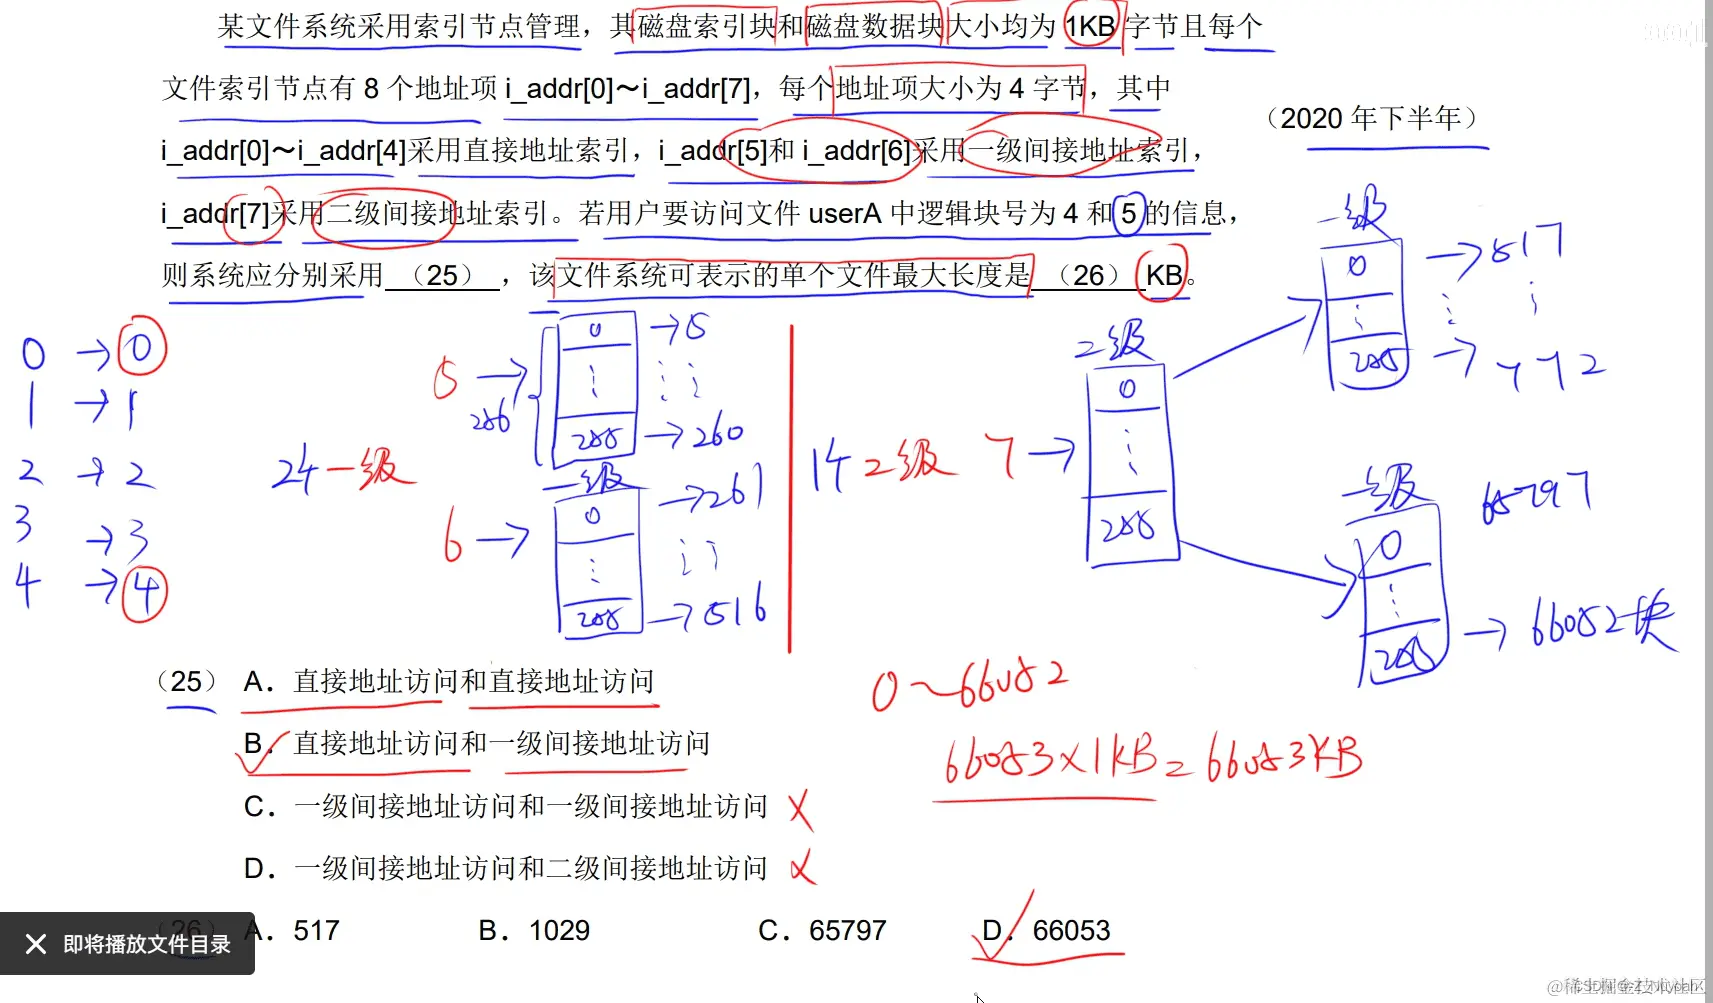 某文件系统采用索引节点管理，其磁盘索引块和磁盘数据块大小均为 1KB 字节且每个
文件索引节点有 8 个地址项 i_addr[0]～i_addr[7]，每个地址项大小为 4 字节，其中
（2020 年下半年）
i_addr[0]～i_addr[4]采用直接地址索引，i_addr[5]和 i_addr[6]采用一级间接地址索引，
i_addr[7]采用二级间接地址索引。若用户要访问文件 userA 中逻辑块号为 4 和 5 的信息，
则系统应分别采用 （25） ，该文件系统可表示的单个文件最大长度是 （26） KB。
0 → 0
1 → 1
2 → 2
3 → 3
4 → 4
24 一级
5 →
256
0 → 5
255 → 260
一级
6 →
0 → 261
255 → 516
14 2级
7 →
2级
0
255
一级
0 → 517
255 → 772
一级
65797
0
255 → 66052块
（25） A．直接地址访问和直接地址访问
0～66052
B．直接地址访问和一级间接地址访问
66053×1KB=66053KB
C．一级间接地址访问和一级间接地址访问 ×
D．一级间接地址访问和二级间接地址访问 ×
（26） A．517 B．1029 C．65797 D．66053
即将播放文件目录
@稀土掘金技术社区